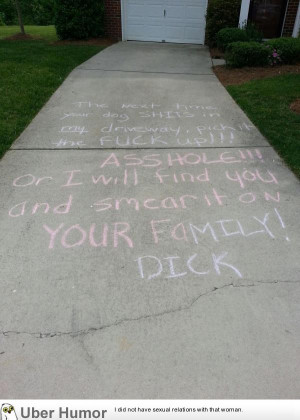 The next time
your dog SHITS in
my driveway, pick it
the FUCK up!!!
ASSHOLE!!!
Or I will find you
and smear it on
YOUR FaMILY!
DICK
Uber Humor
I did not have sexual relations with that woman.